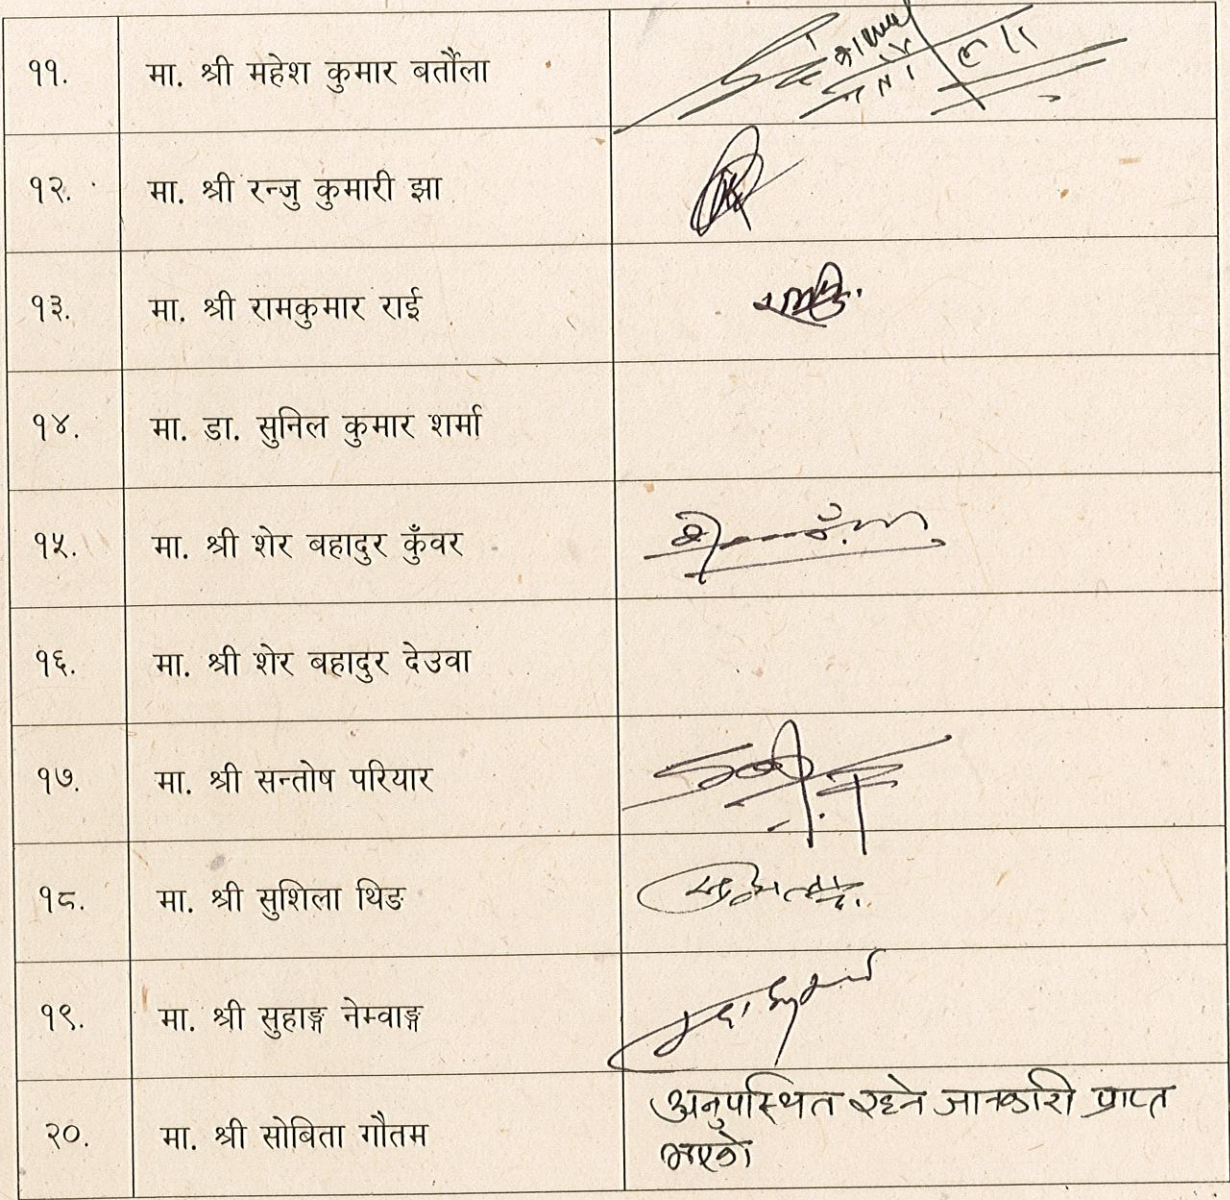 ११. मा. श्री महेश कुमार बर्तौला
१२. मा. श्री रन्जु कुमारी झा
१३. मा. श्री रामकुमार राई
१४. मा. डा. सुनिल कुमार शर्मा
१५. मा. श्री शेर बहादुर कुँवर
१६. मा. श्री शेर बहादुर देउवा
१७. मा. श्री सन्तोष परियार
१८. मा. श्री सुशिला थिङ
१९. मा. श्री सुहाङ्ग नेम्वाङ्ग
२०. मा. श्री सोबिता गौतम अनुपस्थित रहने जानकारी प्राप्त
भएको